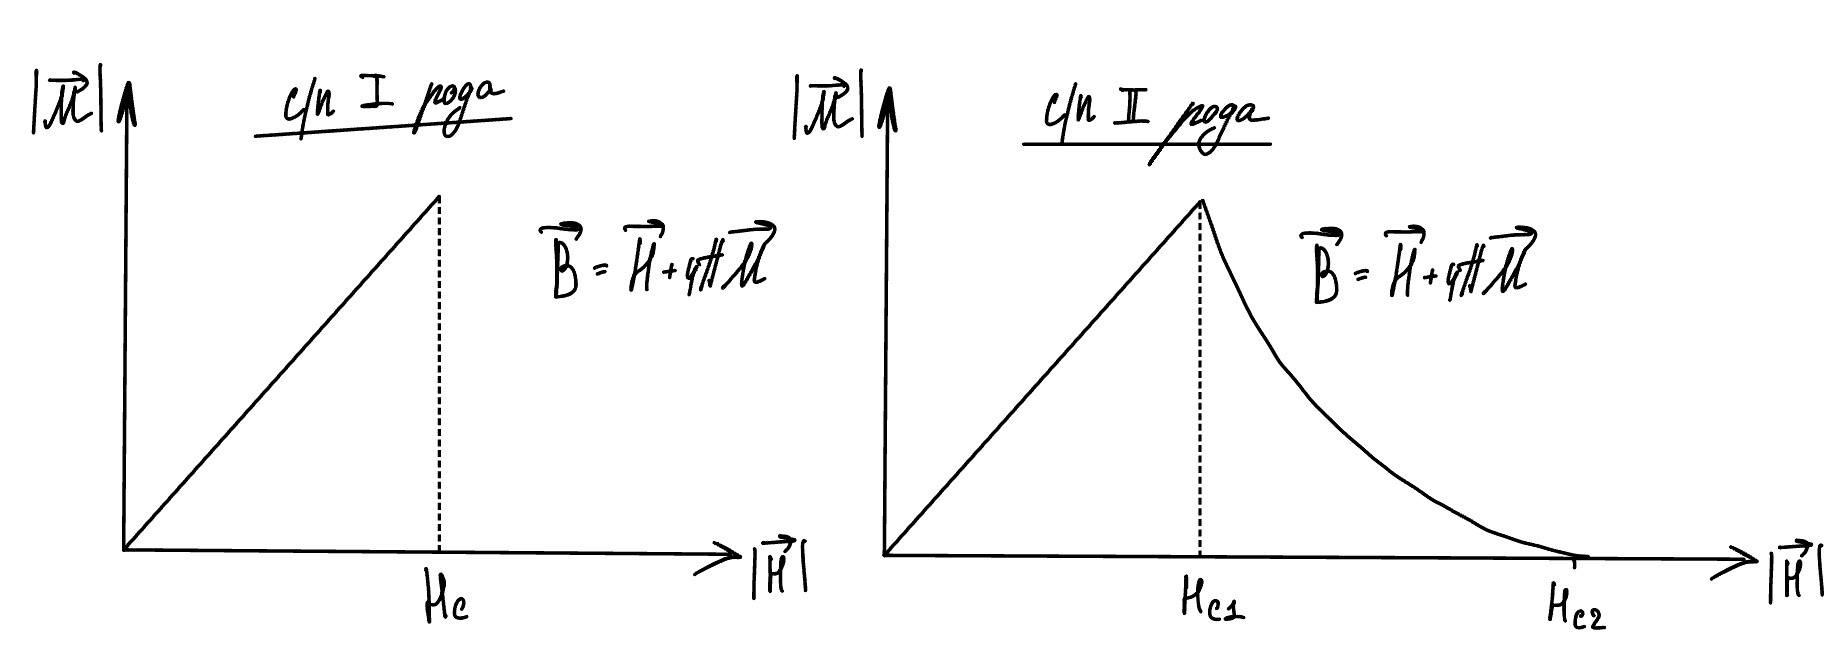 |M⃗|
с/п I рода
B⃗ = H⃗ + 4πM⃗
Hc
|H⃗|
|M⃗|
с/п II рода
B⃗ = H⃗ + 4πM⃗
Hc1
Hc2
|H⃗|